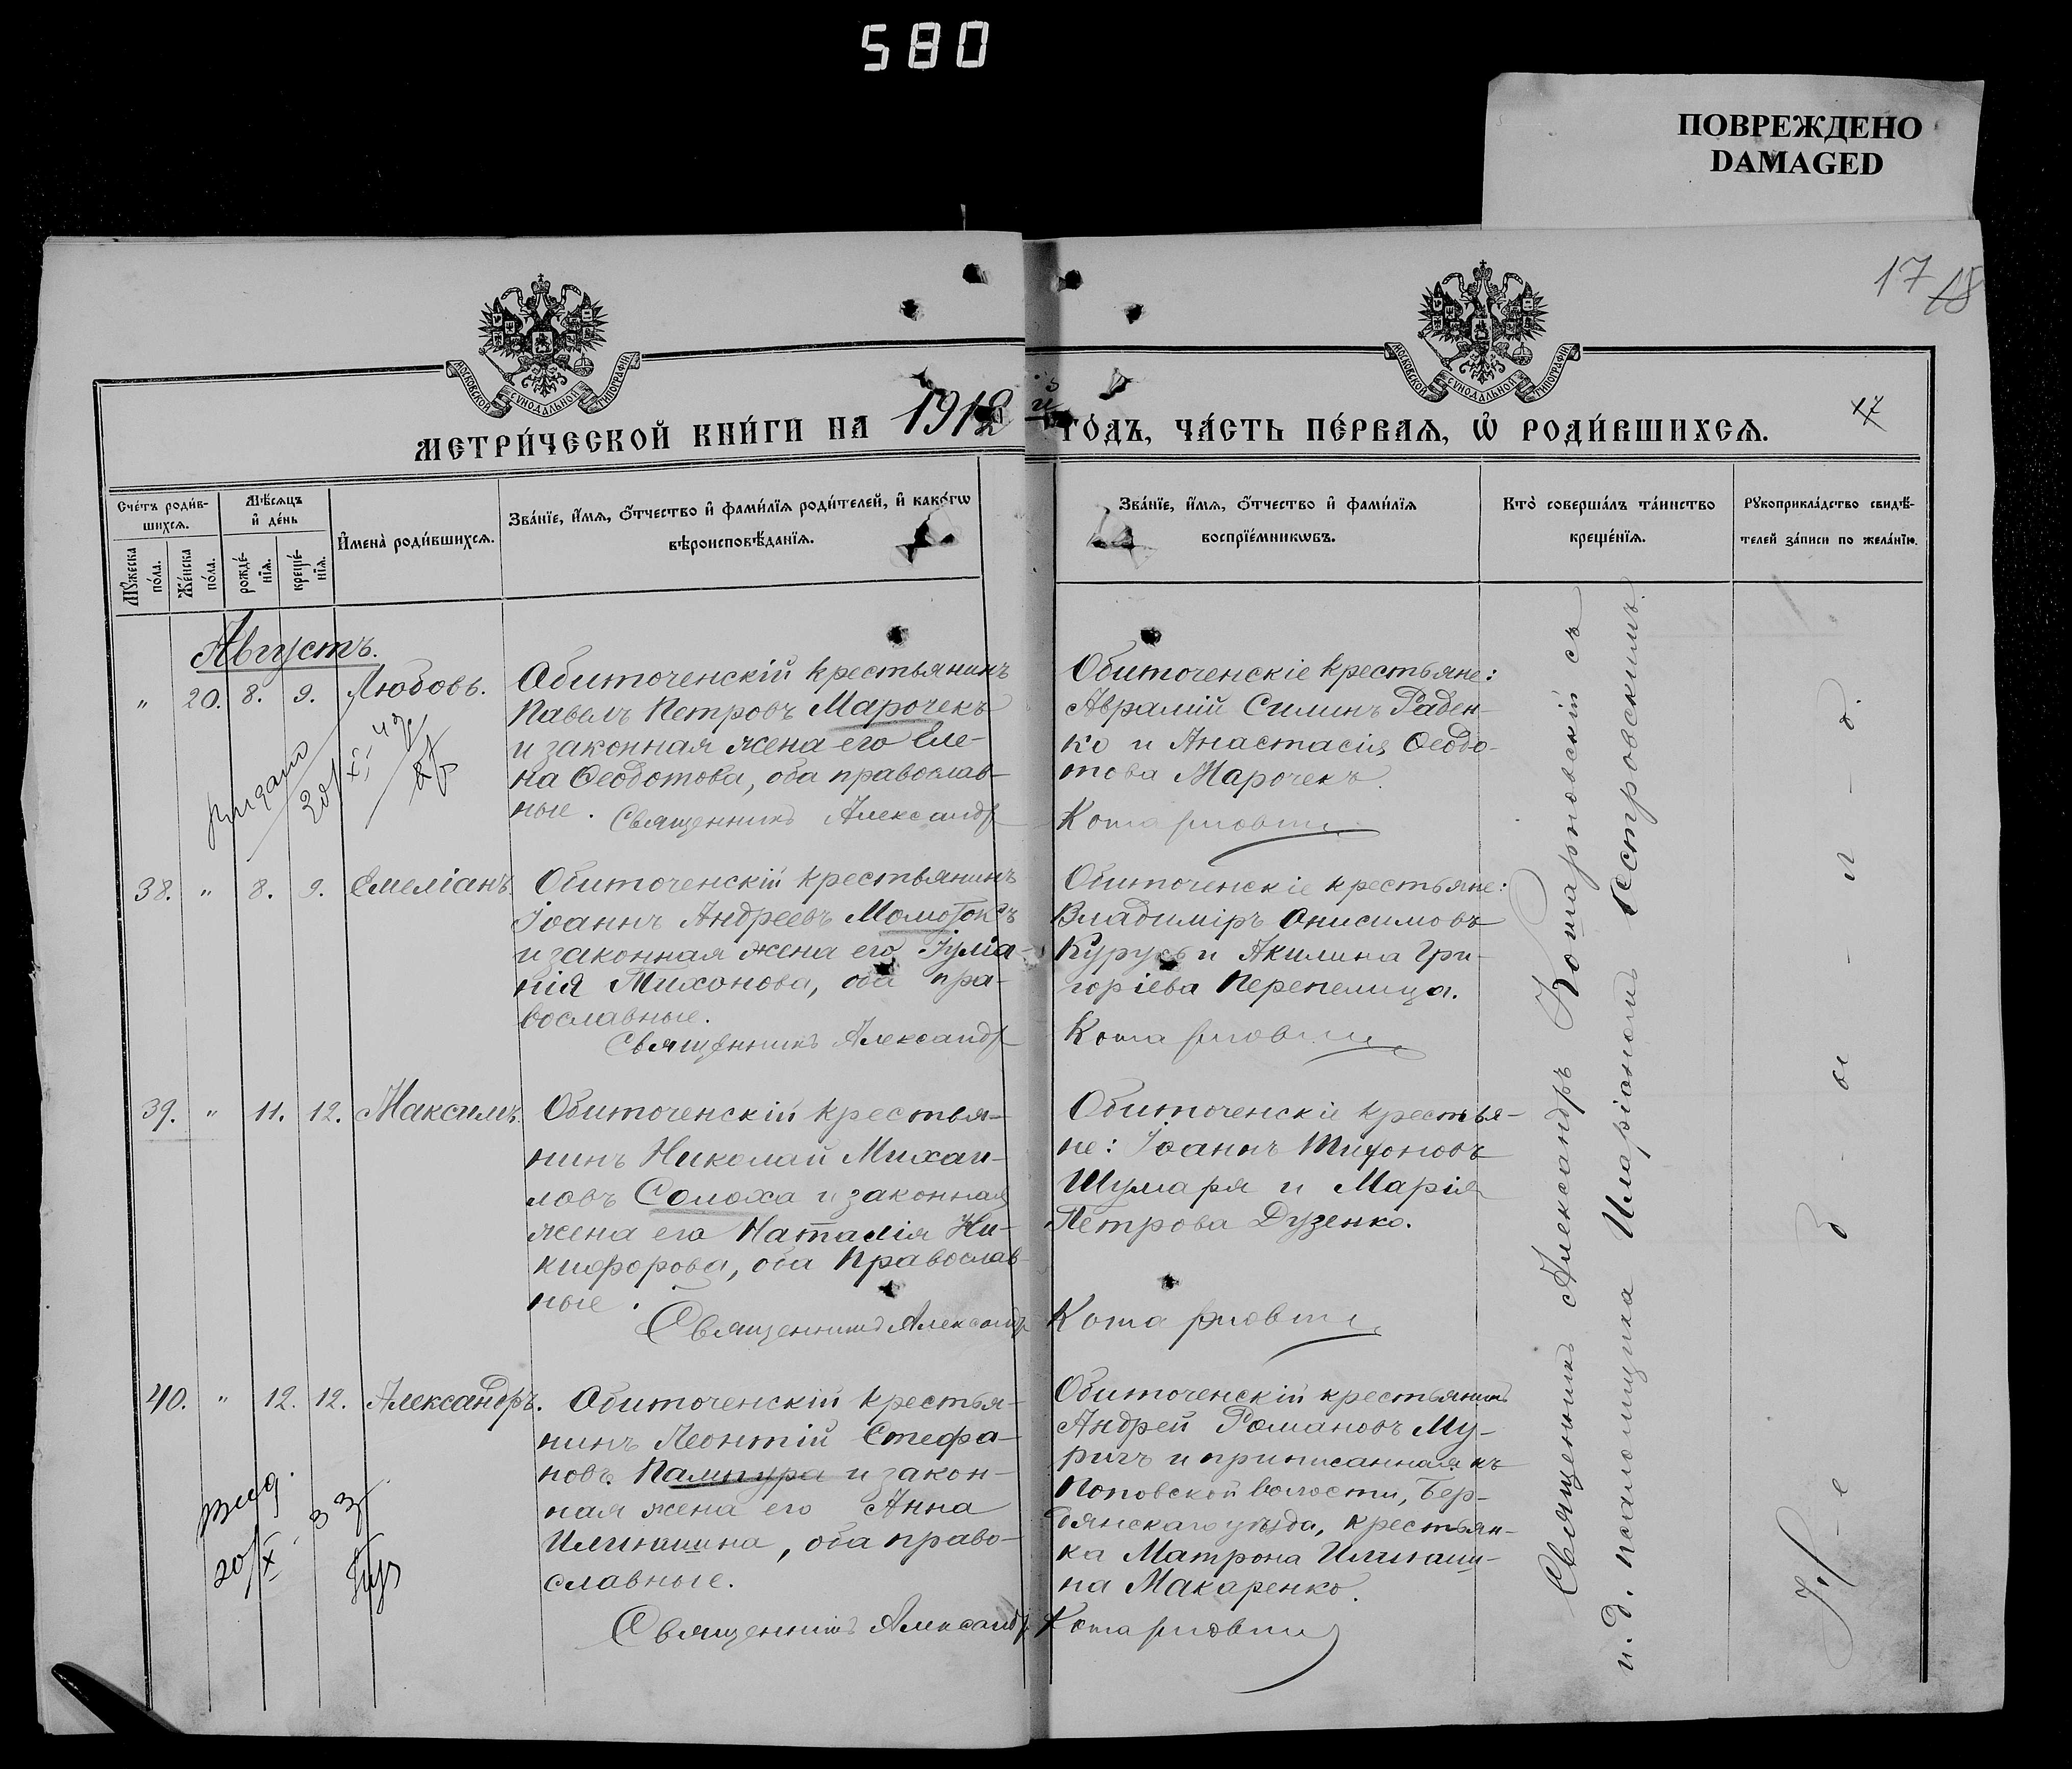 580
ПОВРЕЖДЕНО
DAMAGED
17 18
МОСКОВСКОЙ СУНОДАЛЬНОЙ ТИПОГРАФІИ
МОСКОВСКОЙ СУНОДАЛЬНОЙ ТИПОГРАФІИ
17
МЕТРИ́ЧЕСКОЙ КНИ́ГИ НА 1912 й ГО́ДЪ, ЧА́СТЬ ПЕ́РВАЯ, Ѡ РОДИ́ВШИХСЯ.
Сче́тъ роди́в-
шихся.
Мꙋжеска
по́ла.
Же́нска
по́ла.
Мѣ́сяцъ
и҆ де́нь
рожде́-
нїя.
креще́-
нїя.
И҆мена̀ роди́вшихся.
Зва́нїе, и҆́мя, ѻ҆́тчество и҆ фами́лїя роди́телей, и҆ како́гѡ
вѣроисповѣ́данїя.
Зва́нїе, и҆́мя, ѻ҆́тчество и҆ фами́лїя
воспрїе́мникѡвъ.
Кто̀ соверша́лъ та́инство
креще́нїя.
Рꙋкоприкла́дство свидѣ́-
телей за́писи по жела́нїю.
Августъ.
" 20. 8. 9. Любовь.
Обиточенскій крестьянинъ
Павелъ Петровъ Марочекъ
и законная жена его Еле-
на Ѳеодотова, оба православ-
ные. Священникъ Александръ
Обиточенскіе крестьяне:
Аврамій Силинъ Раден-
ко и Анастасія Ѳеодо-
това Марочекъ.
Котарновскій
Выдано
20/XI
38. " 8. 9. Емеліанъ
Обиточенскій крестьянинъ
Іоаннъ Андреевъ Момотокъ
и законная жена его Іуліа-
нія Тихонова, оба пра-
вославные.
Священникъ Александръ
Обиточенскіе крестьяне:
Владиміръ Онисимовъ
Курусь и Акилина Гри-
горіева Перепелица.
Котарновскій
39. " 11. 12. Максимъ.
Обиточенскій крестья-
нинъ Николай Михаи-
ловъ Солоха и законная
жена его Наталія Ни-
кифорова, оба православ-
ные.
Священникъ Александръ
Обиточенскіе крестья-
не: Іоаннъ Тихоновъ
Шумаря и Марія
Петрова Дузенко.
Котарновскій
40. " 12. 12. Александръ.
Обиточенскій крестья-
нинъ Леонтій Стефа-
новъ Палмура и закон-
ная жена его Анна
Илиишина, оба право-
славные.
Священникъ Александръ
Обиточенскій крестьянинъ
Андрей Романовъ Му-
ричъ и приписанная къ
Поповской волости, Бер-
дянскаго уѣзда, крестьян-
ка Матрона Илиаши-
на Макаренко.
Котарновскій
выд.
20/X
Священникъ Александръ Котарновскій съ
и. д. псаломщика Иларіономъ Пестровскимъ.